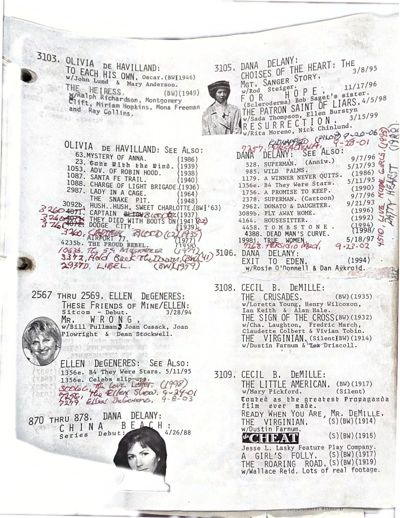 3103. OLIVIA de HAVILLAND:
TO EACH HIS OWN. Oscar.(BW)(1946)
w/John Lund & Mary Anderson.
THE HEIRESS. (BW)(1949)
w/Ralph Richardson, Montgomery
Clift, Miriam Hopkins, Mona Freeman
and Ray Collins.
OLIVIA de HAVILLAND: SEE ALSO:
63. MYSTERY OF ANNA. (1986)
23. Gone With the Wind. (1939)
1053. ADV. OF ROBIN HOOD. (1938)
1087. SANTA FE TRAIL. (1940)
1088. CHARGE OF LIGHT BRIGADE.(1936)
2987. LADY IN A CAGE. (1964)
THE SNAKE PIT. (1948)
3092b. HUSH, HUSH, SWEET CHARLOTTE.(BW)'63)
CAPTAIN BLOOD
THEY DIED WITH BOOTS ON(1941)
DODGE CITY (1939)
AIRPORT 77.
4233b. THE PROUD REBEL. (1958)
3392. Hold Back The Dawn (1941)
2937D. LIBEL. (BW)(1959)
2567 THRU 2569. ELLEN DeGENERES:
THESE FRIENDS OF MINE/ELLEN:
Sitcom - Debut. 3/28/94
MR. WRONG.
w/Bill Pullman, Joan Cusack, Joan
Plowright & Dean Stockwell.
ELLEN DeGENERES: SEE ALSO:
1356e. B4 They Were Stars. 5/11/95
1356e. Celebs slip-ups.
The Love Letter (1998)
The Ellen Show. 9-24-01
Ellen DeGeneres. 9-8-03
870 THRU 878. DANA DELANY:
CHINA BEACH:
Series Debut: 4/26/88
3105. DANA DELANY:
CHOISES OF THE HEART: THE 3/8/95
MGT. SANGER STORY.
w/Rod Steiger.
FOR HOPE. 11/17/96
(Scleroderma) Bob Saget's sister.
THE PATRON SAINT OF LIARS.4/5/98
w/Sada Thompson, Ellen Burstyn
RESURRECTION. 3/15/99
w/Rita Moreno, Nick Chinlund.
DANA DELANY: SEE ALSO:
528. SUPERMAN. (Anniv.) 9/7/96
985. WILD PALMS. 5/17/93
1179. A WINNER NEVER QUITS. (1986)
1356e. B4 They Were Stars. 5/11/95
1756. A PROMISE TO KEEP. (1990)
2798. COMEDY SUPERMAN. 9/7/96
2962. DONATO & DAUGHTER. 9/21/93
3089b. FLY AWAY HOME. (1996)
4164. HOUSESITTER. (1992)
4458. TOMBSTONE. (1993)
4388. DEAD MAN'S CURVE. (1998)
1998j TRUE WOMEN. 5/18/97
3106. DANA DELANY:
EXIT TO EDEN. (1994)
w/Rosie O'Donnell & Dan Aykroid.
3108. CECIL B. DeMILLE:
THE CRUSADES. (BW)(1935)
w/Loretta Young, Henry Wilcoxon,
Ian Keith & Alan Hale.
THE SIGN OF THE CROSS(BW)(1932)
w/Cha. Laughton, Fredric March,
Claudette Colbert & Vivian Tobin.
THE VIRGINIAN.(Silent)(BW)(1914)
w/Dustin Farnum & Tex Driscoll.
3109. CECIL B. DeMILLE:
THE LITTLE AMERICAN. (BW)(1917)
w/Mary Pickford. (Silent)
Touted as the greatest Propaganda
film ever made.
READY WHEN YOU ARE, MR. DEMILLE.
THE VIRGINIAN. (S)(BW)(1914)
w/Dustin Farnum.
the CHEAT (S)(BW)(1915)
Jesse L. Lasky Feature Play Company.
A GIRL'S FOLLY. (BW)(1917)
THE ROARING ROAD.(S)(BW)(1919)
w/Wallace Reid. Lots of real footage.